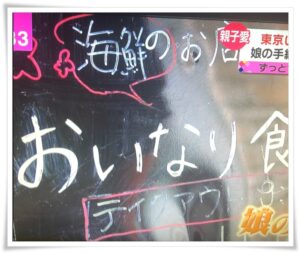 33
海鮮のお店
親子愛
東京
娘の手
ずっと
おいなり食
テイクアウ
娘の